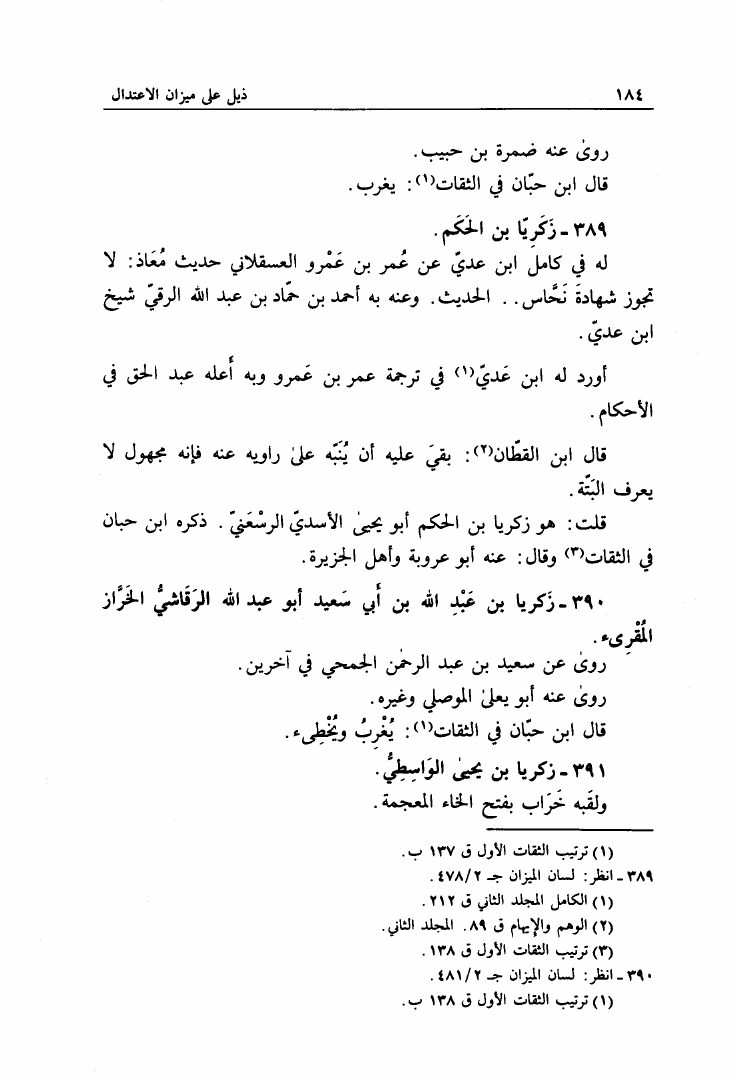 ١٨٤ ذيل على ميزان الاعتدال
روىٰ عنه ضمرة بن حبيب.
قال ابن حبّان في الثقات(١): يغرب.
٣٨٩ ـ زَكَرِيّا بن الحَكَم.
له في كامل ابن عديّ عن عُمر بن عَمْرو العسقلاني حديث مُعَاذ: لا
تجوز شهادةَ نَحَّاس.. الحديث. وعنه به أحمد بن حمّاد بن عبد الله الرقيّ شيخ
ابن عديّ.
أورد له ابن عَديّ(١) في ترجمة عمر بن عَمرو وبه أَعله عبد الحق في
الأحكام.
قال ابن القطّان(٢): بقيَ عليه أن يُنَبّه علىٰ راويه عنه فإنه مجهول لا
يعرف البَتّة.
قلت: هو زكريا بن الحكم أبو يحيىٰ الأسديّ الرسْعَنيّ. ذكره ابن حبان
في الثقات(٣) وقال: عنه أبو عروبة وأهل الجزيرة.
٣٩٠ ـ زَكريا بن عَبْدِ الله بن أَبي سَعيد أبو عبد الله الرَقَاشيُّ الخَرَّاز
المُقْرِىء.
روىٰ عن سعيد بن عبد الرحمٰن الجمحي في آخرين.
روىٰ عنه أبو يعلىٰ الموصلي وغيره.
قال ابن حبّان في الثقات(١): يُغْرِبُ ويُخْطِىء.
٣٩١ ـ زكريا بن يحيىٰ الوَاسِطِيُّ.
ولقبه خَرَاب بفتح الخاء المعجمة.
(١) ترتيب الثقات الأول ق ١٣٧ ب.
٣٨٩ ـ انظر: لسان الميزان جـ ٢/ ٤٧٨.
(١) الكامل المجلد الثاني ق ٢١٢.
(٢) الوهم والإيهام ق ٨٩. المجلد الثاني.
(٣) ترتيب الثقات الأول ق ١٣٨.
٣٩٠ ـ انظر: لسان الميزان جـ ٢/ ٤٨١.
(١) ترتيب الثقات الأول ق ١٣٨ ب.